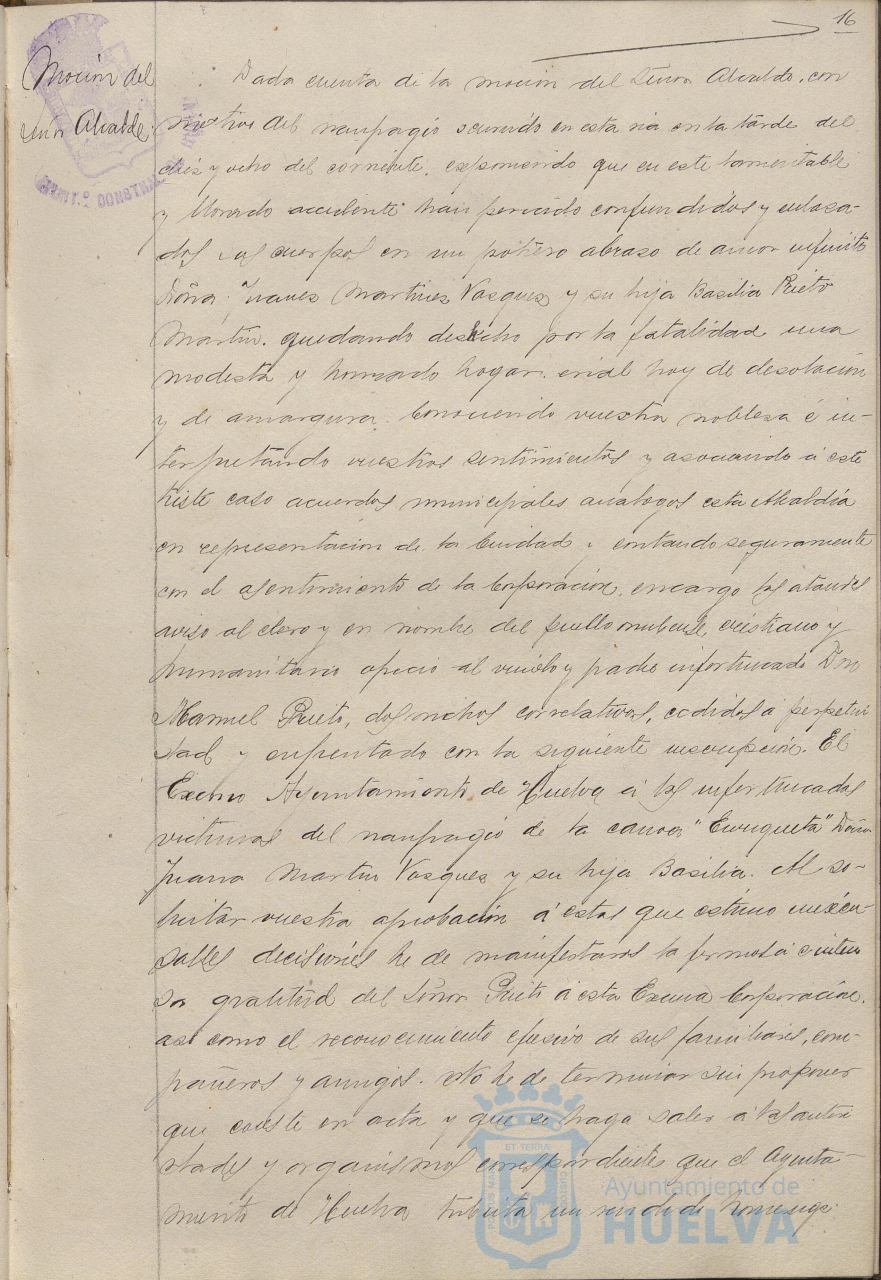 16
Moción del
Señor Alcalde.
Dada cuenta de la moción del Señor Alcalde, con
motivo del naufragio ocurrido en esta ria en la tarde del
diez y ocho del corriente, exponiendo que en este lamentable
y llorado accidente han perecido confundidos y enlaza-
dos sus cuerpos en un postrero abrazo de amor infinito
Doña Juana Martinez Vazquez y su hija Basilia Prieto
Martin, quedando deshecho por la fatalidad una
modesta y honrado hogar, erial hoy de desolación
y de amargura. Conociendo vuestra nobleza é in-
terpretando vuestros sentimientos y asociando á este
triste caso acuerdos municipales analogos esta Alcaldía
en representación de la Ciudad y contando seguramente
con el asentimiento de la Corporación, encargo los ataudes
aviso al clero y en nombre del pueblo onubense, cristiano y
humanitario ofreció al viudo y padre infortunado Don
Manuel Prieto, dos nichos correlativos, cedidos á perpetui
dad y enfrentado con la siguiente inscripción. El
Excmo Ayuntamiento de Huelva á las infortunadas
victimas del naufragio de la canoa "Enriqueta" Doña
Juana Martin Vazquez y su hija Basilia. Al so-
licitar vuestra aprobación á estas que estimo inexcu-
sables decisiones he de manifestaros la fermosa é inten
sa gratitud del Señor Prieto á esta Excma Corporación.
así como el reconocimiento efusivo de sus familiares, com-
pañeros y amigos. No he de terminar sin proponer
que conste en acta y que se haga saber á las autori
dades y organismos correspondientes que el Ayunta-
miento de Huelva tributa un rendido homenaje
PORTUS MARIS
ET TERRAE
CUSTODIA
Ayuntamiento de
HUELVA